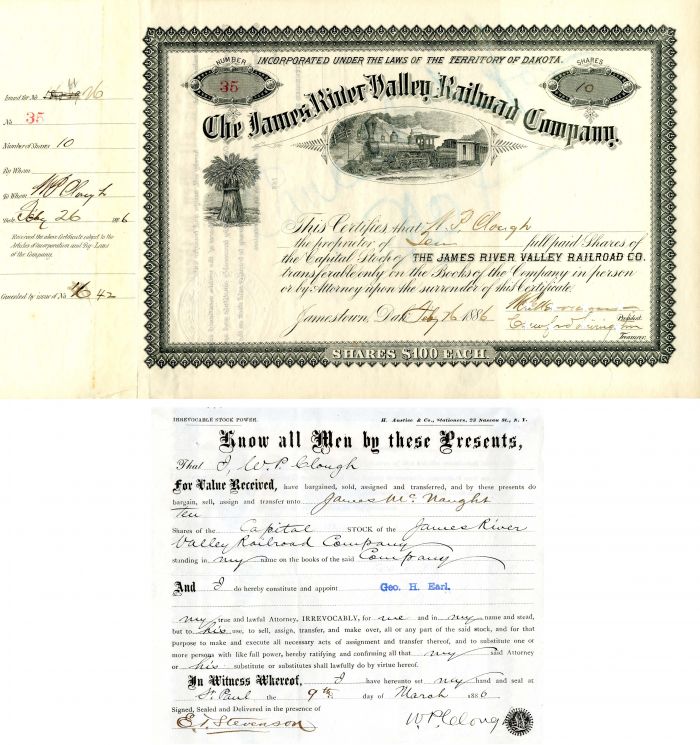 Issued for No 26
No 35
Number of Shares 10
By Whom
To Whom W P Clough
Date Feby 26 1886
Received the above Certificate subject to the
Articles of Incorporation and By-Laws
of the Company.
Canceled by issue of No 42
INCORPORATED UNDER THE LAWS OF THE TERRITORY OF DAKOTA.
NUMBER
35
SHARES
10
The James River Valley Railroad Company,
This Certifies that W. P. Clough
the proprietor of Ten full paid Shares of
the Capital Stock of THE JAMES RIVER VALLEY RAILROAD CO.
transferable only on the Books of the Company in person
or by Attorney upon the surrender of this Certificate.
Jamestown, Dak. Feby 26 1886
President.
Treasurer.
SHARES $100 EACH.
IRREVOCABLE STOCK POWER.
H. Austice & Co., Stationers, 23 Nassau St., N. Y.
Know all Men by these Presents,
That I, W. P. Clough
For Value Received, have bargained, sold, assigned and transferred, and by these presents do
bargain, sell, assign and transfer unto James McNaught
Ten
Shares of the Capital STOCK of the James River
Valley Railroad Company
standing in my name on the books of the said Company
And I do hereby constitute and appoint Geo. H. Earl.
my true and lawful Attorney, IRREVOCABLY, for me and in my name and stead,
but to his use, to sell, assign, transfer, and make over, all or any part of the said stock, and for that
purpose to make and execute all necessary acts of assignment and transfer thereof, and to substitute one or
more persons with like full power, hereby ratifying and confirming all that my said Attorney
or his substitute or substitutes shall lawfully do by virtue hereof.
In Witness Whereof, I have hereunto set my hand and seal at
St. Paul the 9th day of March 1886
Signed, Sealed and Delivered in the presence of
E. T. Stevenson
W. P. Clough